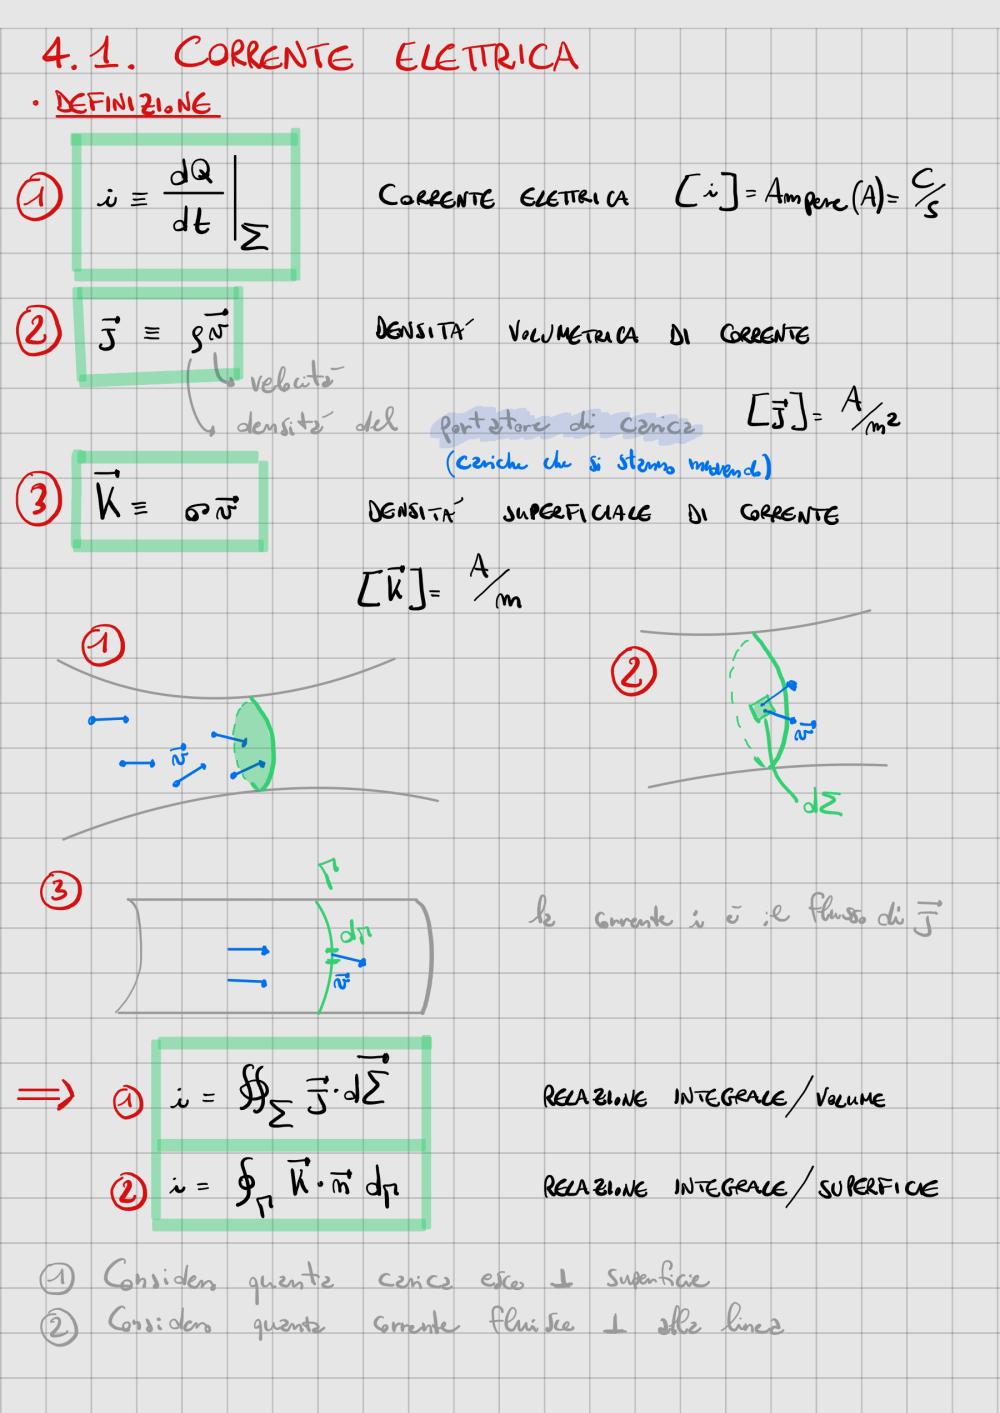 4.1. CORRENTE ELETTRICA
• DEFINIZIONE
① i ≡ dQ/dt |_Σ CORRENTE ELETTRICA [i] = Ampere (A) = C/s
② J⃗ ≡ ρv⃗ DENSITÁ VOLUMETRICA DI CORRENTE
velocitá
densitá del portatore di carica [J⃗] = A/m²
(cariche che si stanno muovendo)
③ K⃗ ≡ σv⃗ DENSITÁ SUPERFICIALE DI CORRENTE
[K⃗] = A/m
①
②
v⃗
v⃗
dΣ
③
Γ
dΓ
v⃗
la corrente i é il flusso di J⃗
⟹ ① i = ∯_Σ J⃗ · dΣ⃗ RELAZIONE INTEGRALE/VOLUME
② i = ∮_Γ K⃗ · n⃗ dΓ RELAZIONE INTEGRALE/SUPERFICIE
① Considero quanta carica esce ⊥ superficie
② Considero quanta corrente fluisce ⊥ alla linea